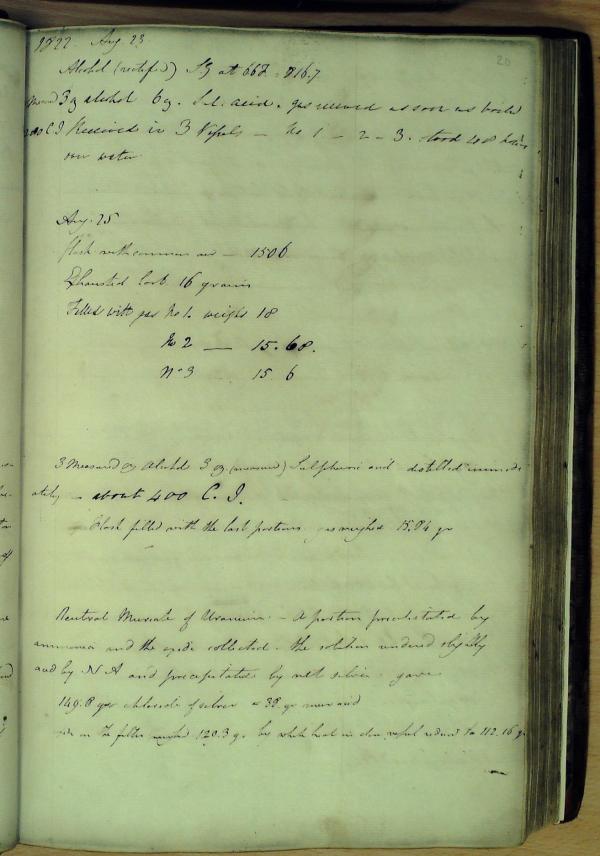 1822. Aug 23
20
Alcohol (rectified) S.G at 66 = 816.7
3 oz alcohol 6 oz. S.l. acid. gas received as soon as boiled
C. I Received in 3 Vessels — No 1 - 2 - 3. stood 48 hours
over water
Aug. 25
flask with common air — 1506
Exhausted lost 16 grains
Filled with gas No 1. weighs 18
No 2 — 15.68.
No 3 15.6
3 Measured oz Alcohol 3 oz. (measure) Sulphuric acid distilled immedi
ately — about 400 C. I.
Flask filled with the last portions gas weighed 15.84 gr
Neutral Muriate of Uranium — A portion precipitated by
ammonia and the oxide collected. the solution rendered slightly
acid by N A and precipitated by nit silver gave
149.8 grs chloride of silver = 38 gr mur acid
on the filter weighed 120.3 g. by white heat in close vessel reduced to 112.16 gr